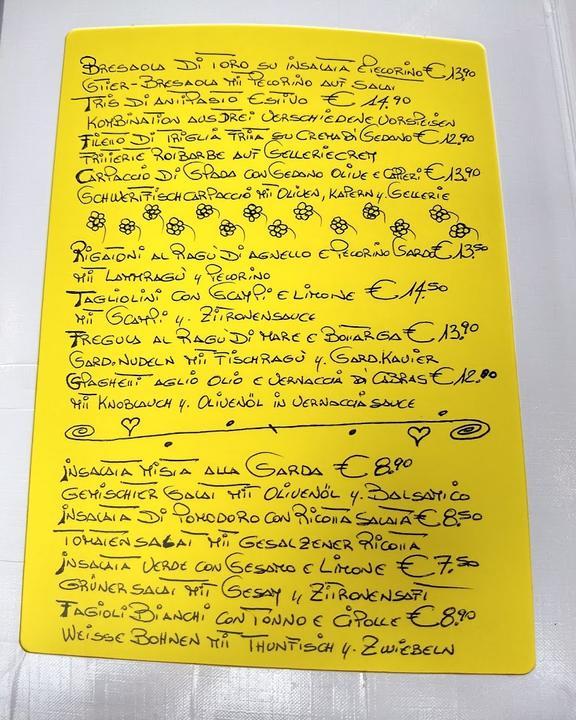 Bresaola di Toro su insalata e Pecorino € 13,90
Stier-Bresaola mit Pecorino auf Salat
Tris di Antipasto Estivo € 14,90
Kombination aus drei verschiedene Vorspeisen
Filetto di Triglia fritta su Crema di Sedano € 12,90
Frittierte Rotbarbe auf Selleriecrem
Carpaccio di Spada con Sedano Olive e Capperi € 13,90
Schwertfischcarpaccio mit Oliven, Kapern u. Sellerie
Rigatoni al Ragù di Agnello e Pecorino Sardo € 13,50
mit Lammragù u. Pecorino
Tagliolini con Scampi e Limone € 14,50
mit Scampi u. Zitronensauce
Fregula al Ragù di Mare e Bottarga € 13,90
Sard. Nudeln mit Fischragù u. Sard. Kavier
Spaghetti aglio olio e Vernaccia di Cabras € 12,00
mit Knoblauch u. Olivenöl in Vernaccia Sauce
insalata mista alla Sarda € 8,90
Gemischter Salat mit Olivenöl u. Balsamico
insalata di Pomodoro con Ricotta salata € 8,50
Tomatensalat mit gesalzener Ricotta
insalata verde con Sesamo e Limone € 7,50
Grüner Salat mit Sesam u. Zitronensaft
Fagioli Bianchi con Tonno e Cipolle € 8,90
Weisse Bohnen mit Thunfisch u. Zwiebeln